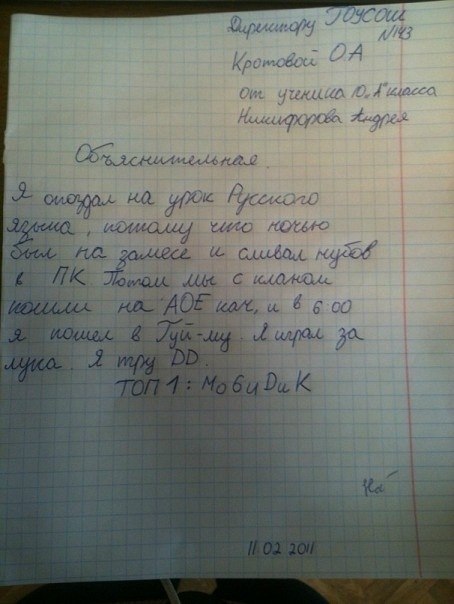 Директору ГОУСОШ
№143
Кротовой О А
от ученика 10 „А" класса
Никифорова Андрея
Объяснительная.
Я опоздал на урок Русского
языка, потому что ночью
был на замесе и сливал нубов
в ПК. Потом мы с кланом
пошли на АОЕ кач, и в 6:00
я пошел в Гуй-му. Я играл за
лука. Я тру DD.
ТОП 1: МобиDиК
11.02 2011